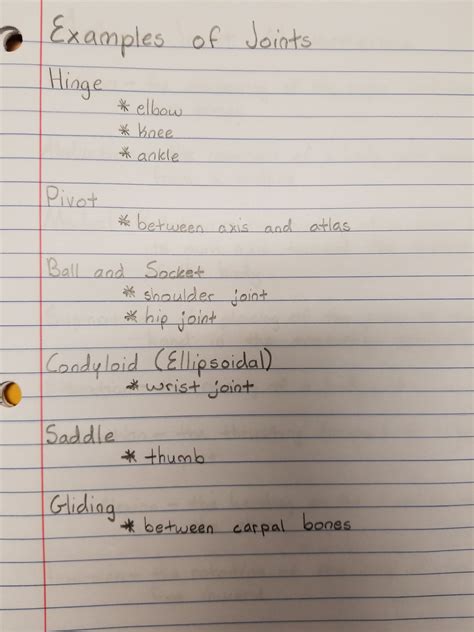 Examples of Joints
Hinge
* elbow
* knee
* ankle
Pivot
* between axis and atlas
Ball and Socket
* shoulder joint
* hip joint
Condyloid (Ellipsoidal)
* wrist joint
Saddle
* thumb
Gliding
* between carpal bones